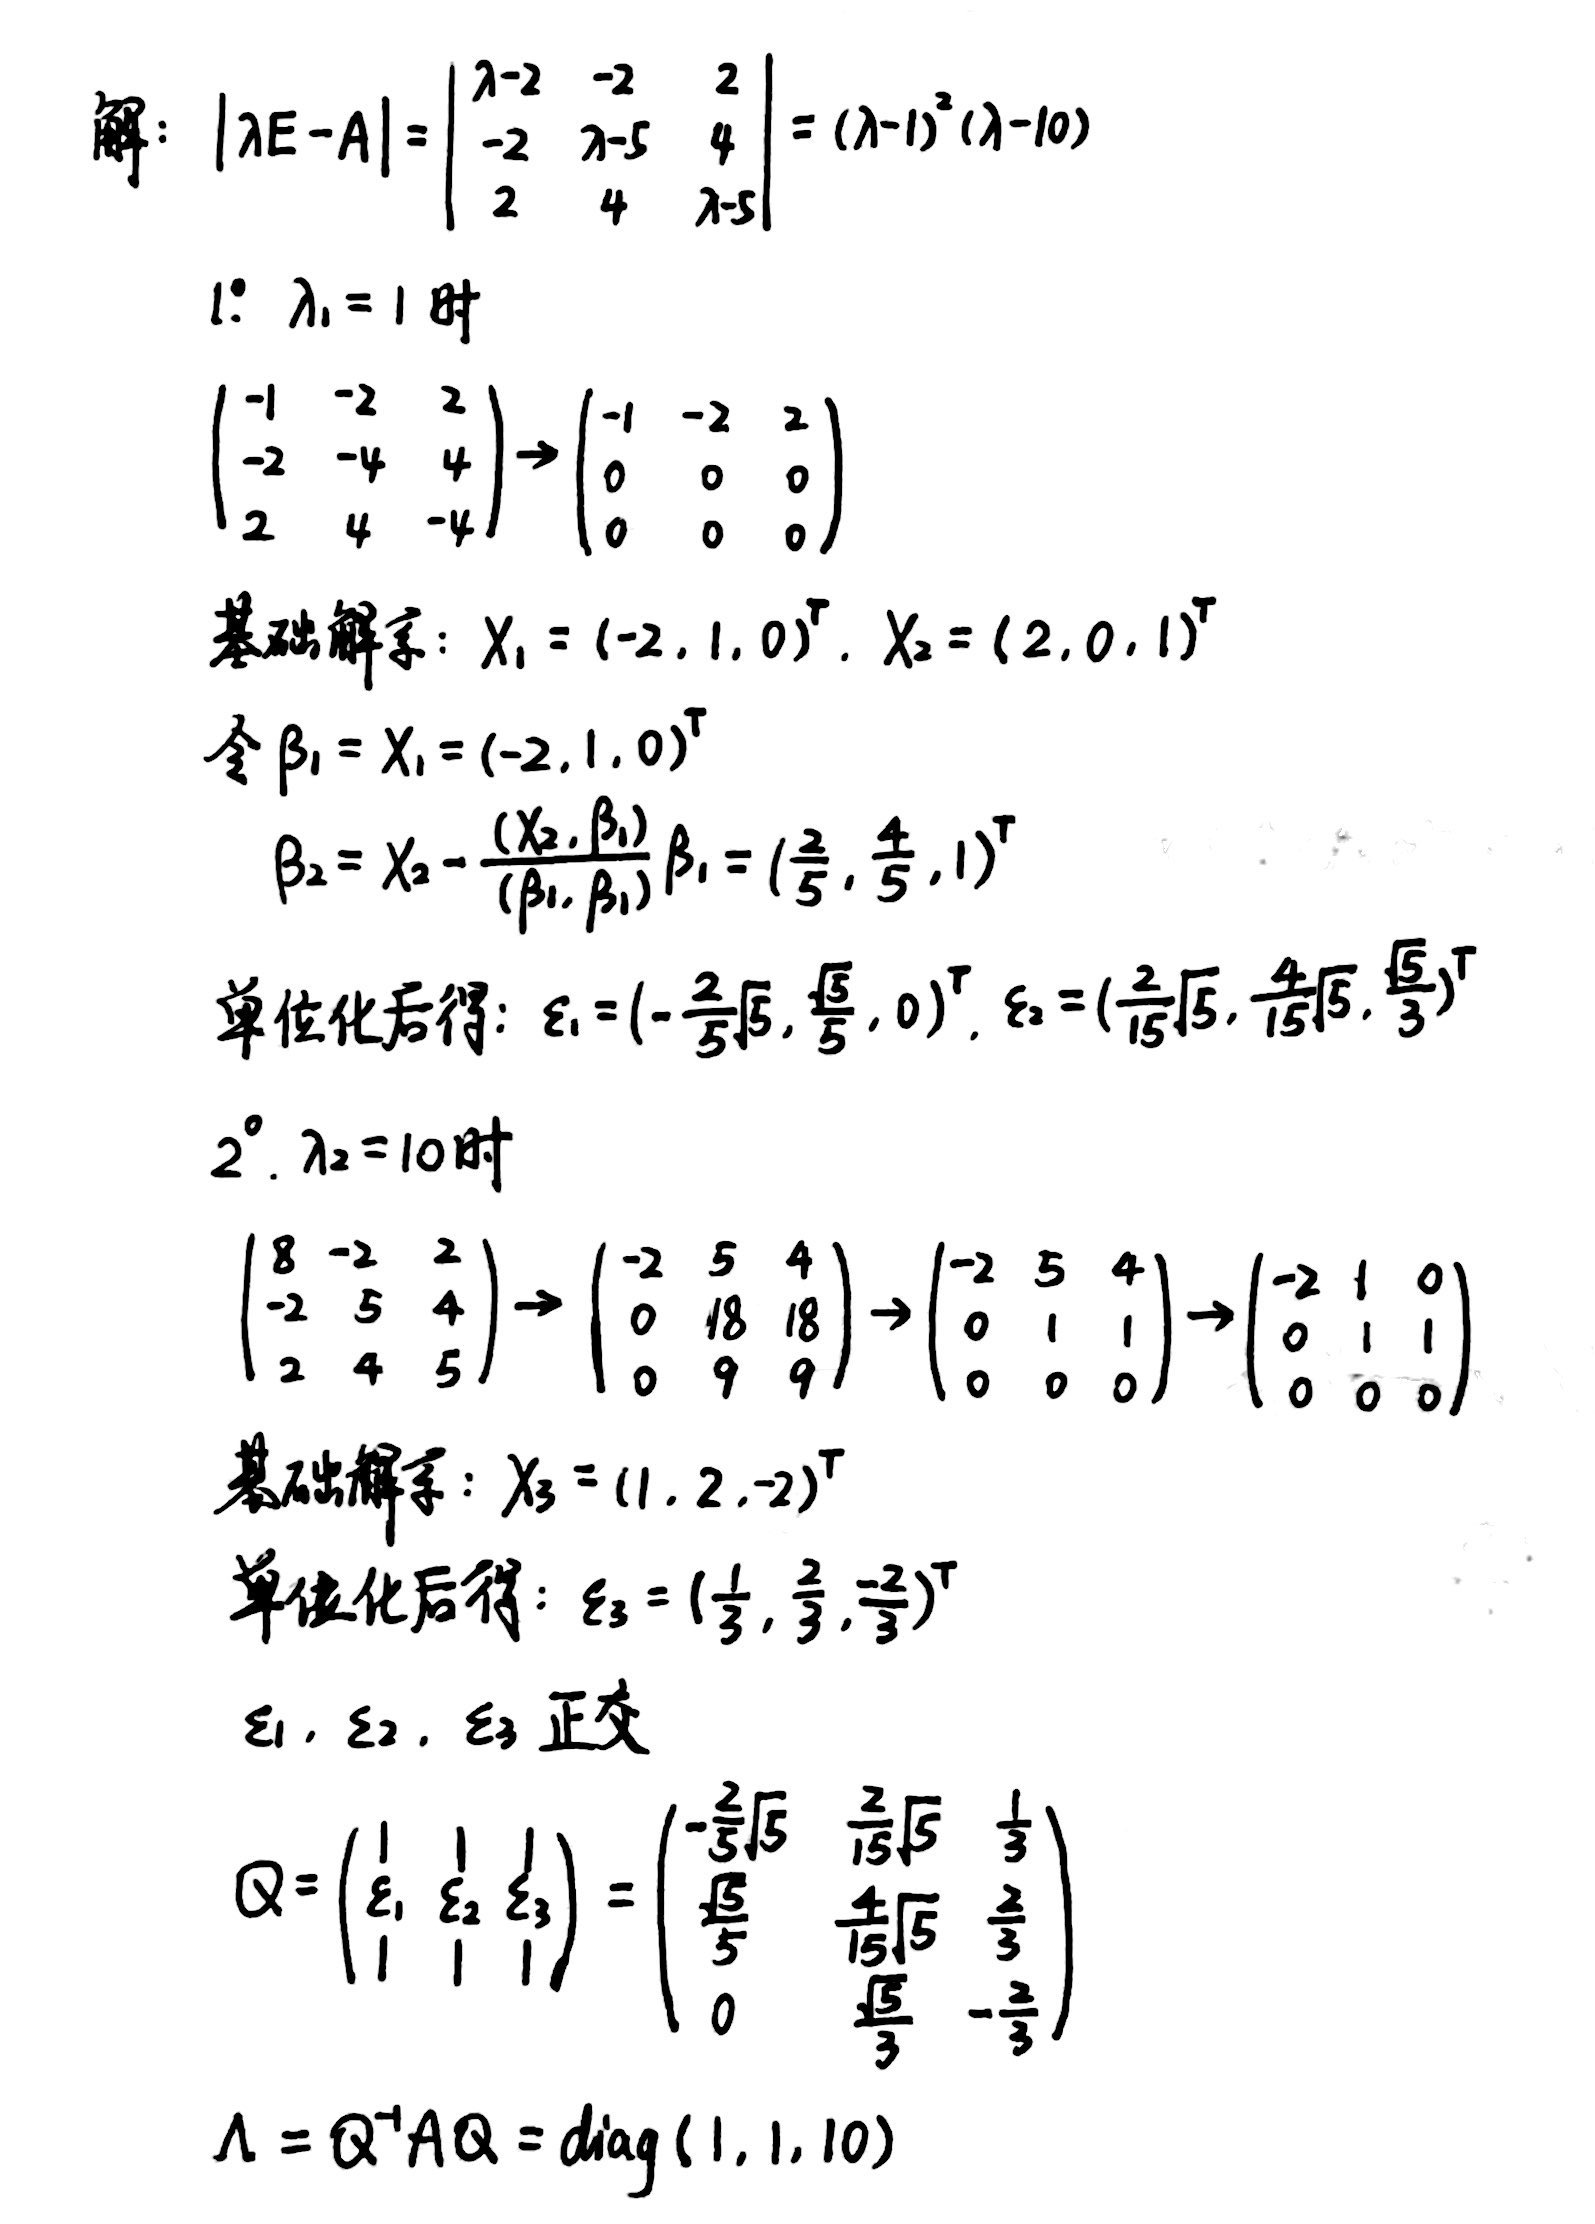 解: |λE-A| = | λ-2 -2 2 ; -2 λ-5 4 ; 2 4 λ-5 | = (λ-1)²(λ-10)
1°. λ₁ = 1 时
( -1 -2 2 ; -2 -4 4 ; 2 4 -4 ) → ( -1 -2 2 ; 0 0 0 ; 0 0 0 )
基础解系: X₁ = (-2, 1, 0)ᵀ. X₂ = (2, 0, 1)ᵀ
令 β₁ = X₁ = (-2, 1, 0)ᵀ
β₂ = X₂ - (X₂, β₁)/(β₁, β₁) β₁ = (2/5, 4/5, 1)ᵀ
单位化后得: ε₁ = (-2/5√5, √5/5, 0)ᵀ. ε₂ = (2/15√5, 4/15√5, √5/3)ᵀ
2°. λ₂ = 10 时
( 8 -2 2 ; -2 5 4 ; 2 4 5 ) → ( -2 5 4 ; 0 18 18 ; 0 9 9 ) → ( -2 5 4 ; 0 1 1 ; 0 0 0 ) → ( -2 1 0 ; 0 1 1 ; 0 0 0 )
基础解系: X₃ = (1, 2, -2)ᵀ
单位化后得: ε₃ = (1/3, 2/3, -2/3)ᵀ
ε₁, ε₂, ε₃ 正交
Q = ( | | | ; ε₁ ε₂ ε₃ ; | | | ) = ( -2/5√5 2/15√5 1/3 ; √5/5 4/15√5 2/3 ; 0 √5/3 -2/3 )
Λ = Q⁻¹AQ = diag(1, 1, 10)